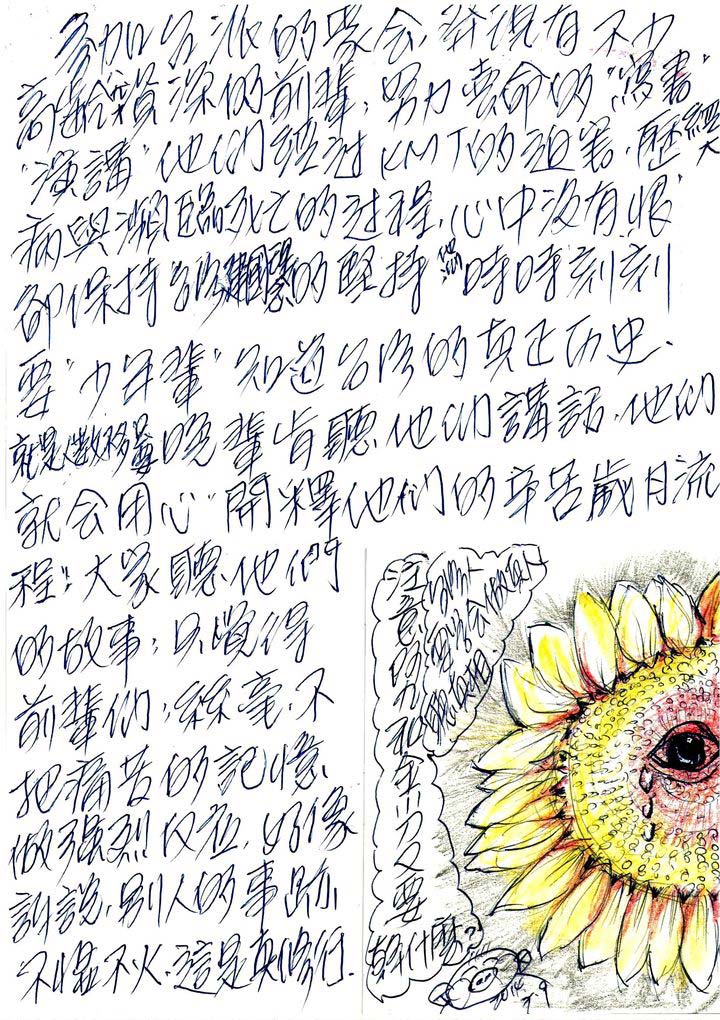 參加台派的聚会,發現有不少
高齡資深的前輩,努力壹命的"寫書"
"演講"他们經过KMT的迫害,歷經大
病與瀕臨死亡的过程,心中没有恨
卻保持台灣建國的堅持 他们時時刻刻
要"少年輩"知道台灣的真正历史.
就是人數不多 晚輩肯聽他们講話,他们
就会用心"開釋他们的辛苦歲月流
程!大家聽他們
的故事,只覺得
前輩们,絲毫不
把痛苦的記憶
做強烈反应,好像
訴說,別人的事跡
不慍不火,這是真修行.
注意努力
又要
幹什麼?
2014
3.9